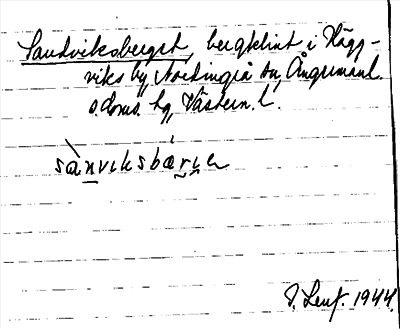 Sandviksberget, bergklint i Hägg-
viks by, Nordingrå sn, Ångermanl.
s. doms. hg, Västern. l.
sànviksbárɩe
1944.